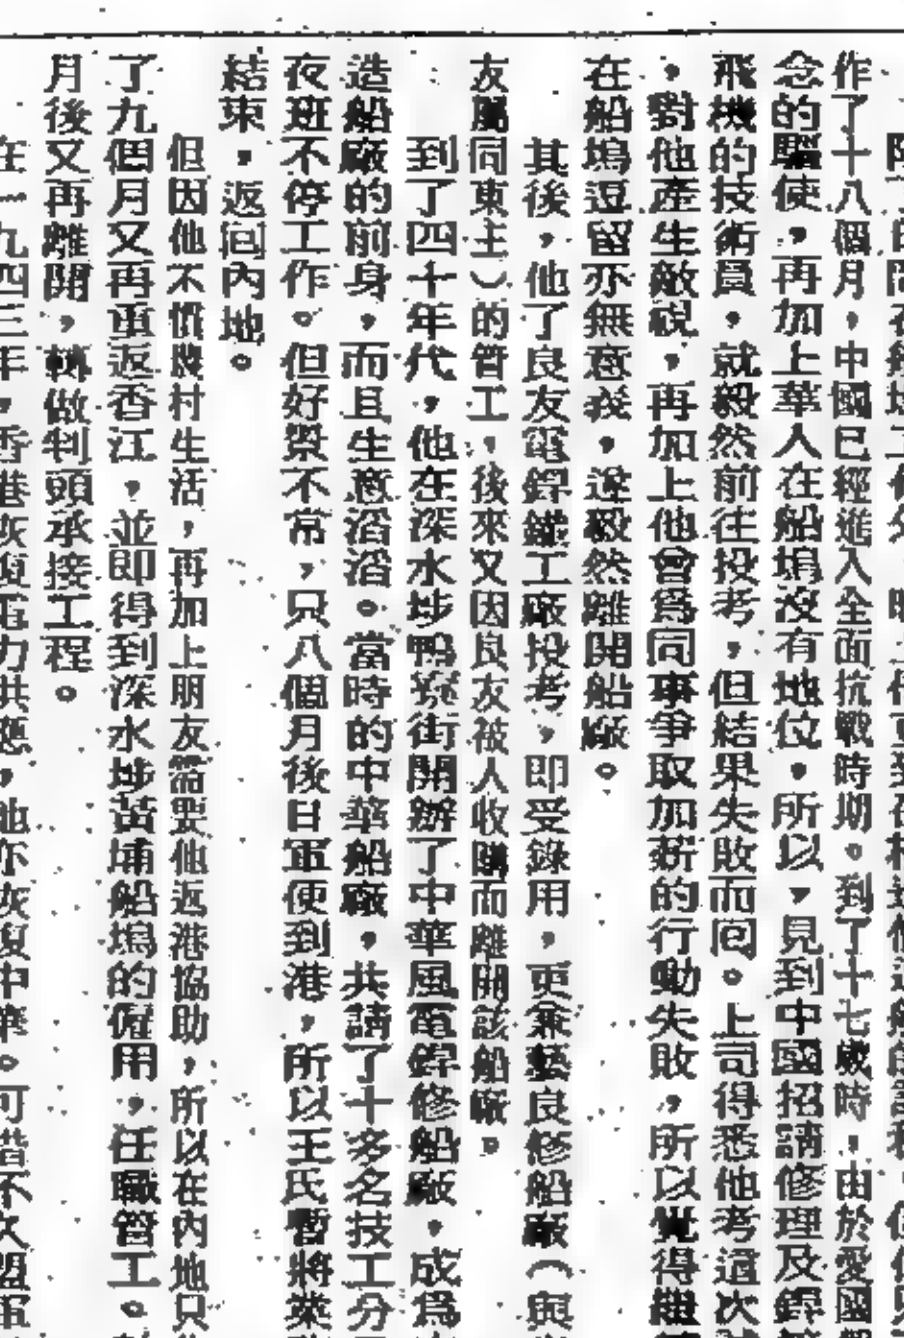 作了十八個月，中國已經進入全面抗戰時期。到了十七歲時，由於愛國
念的驅使，再加上華人在船塢沒有地位，所以，見到中國招請修理及銲
飛機的技術員，就毅然前往投考，但結果失敗而囘。上司得悉他考這次
，對他產生敵視，再加上他曾爲同事爭取加薪的行動失敗，所以覺得繼
在船塢逗留亦無意義，遂毅然離開船廠。
其後，他了良友電銲鐵工廠投考，即受錄用，更兼藝良修船廠（與
友屬同東主）的管工，後來又因良友被人收購而離開該船廠。
到了四十年代，他在深水埗鴨寮街開辦了中華風電銲修船廠，成爲
造船廠的前身，而且生意滔滔。當時的中華船廠，共請了十多名技工分
夜班不停工作。但好景不常，只八個月後日軍便到港，所以王氏暫將業
結束，返囘內地。
但因他不慣農村生活，再加上朋友需要他返港協助，所以在內地只
了九個月又再重返香江，並即得到深水埗黃埔船塢的僱用，任職管工。
月後又再離開，轉做判頭承接工程。
在一九四三年，香港恢復電力供應，他亦恢復中華。可惜不久盟軍